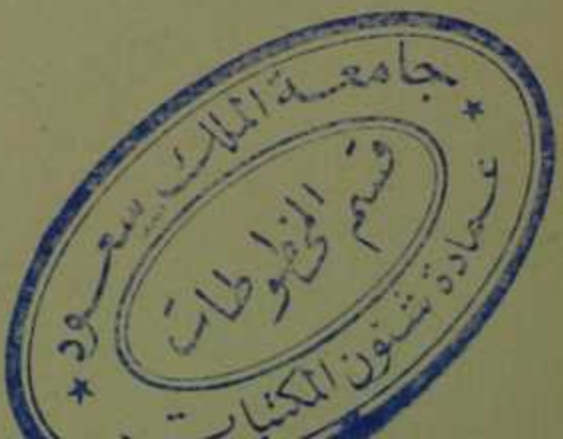 جامعة الملك سعود
قسم
المخطوطات
عمادة شئون المكتبات